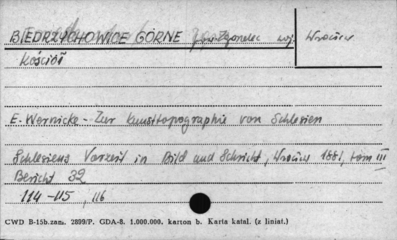 BIEDRZYCHOWICE GÓRNE pow. Zgorzelec woj. Wrocław
Kościół
E. Wernicke - Zur Kunsttopographie von Schlesien
Schlesiens Vorzeit in Bild und Schricht, Wrocław 1881, tom III
Bericht 32
114-115, 116
CWD B-15b.zam. 2899/P. GDA-8. 1.000.000. karton b. Karta katal. (z liniat.)